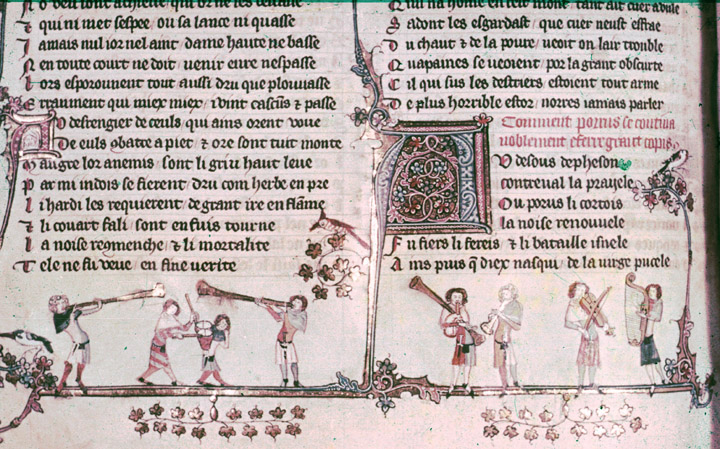 & qui ni met sespee ou sa lance ni quasse
Jamais nul ior nel aint dame haute ne basse
Nen toute court ne doit venir eure nespasse
Lors esporounent tout aussi dru que plouuasse
qui miex miex cascuns & passe
Au desrengier de ceuls qui ains orent voue
De euls ꝯbatre a piet & ore sont tuit monte
Maugre lor anemis sont li griu haut leue
Par mi indois se fierent dru com herbe en pre
Li hardi les requierent de grant ire en flāme
& li couart fali sont en fuis tourne
La noise reꝯmenche & li mortalite
Tele ne fu veue en fine verite
les esgardast que cuer neust
Du chaut & de la poure veoit on lair trouble
Quapaines se veoient por la grant obscurte
Cil qui sus les destriers estoient tout arme
De plus horrible estor norres iamais parler
Comment porrus se
noblement
Au desous de pheson
contreual la prayele
Ou porus li cortois
la noise renouuele
Fu fiers li fereis & li bataille isnele
Ains puis q̄ diex nasqui de la uirge pucele